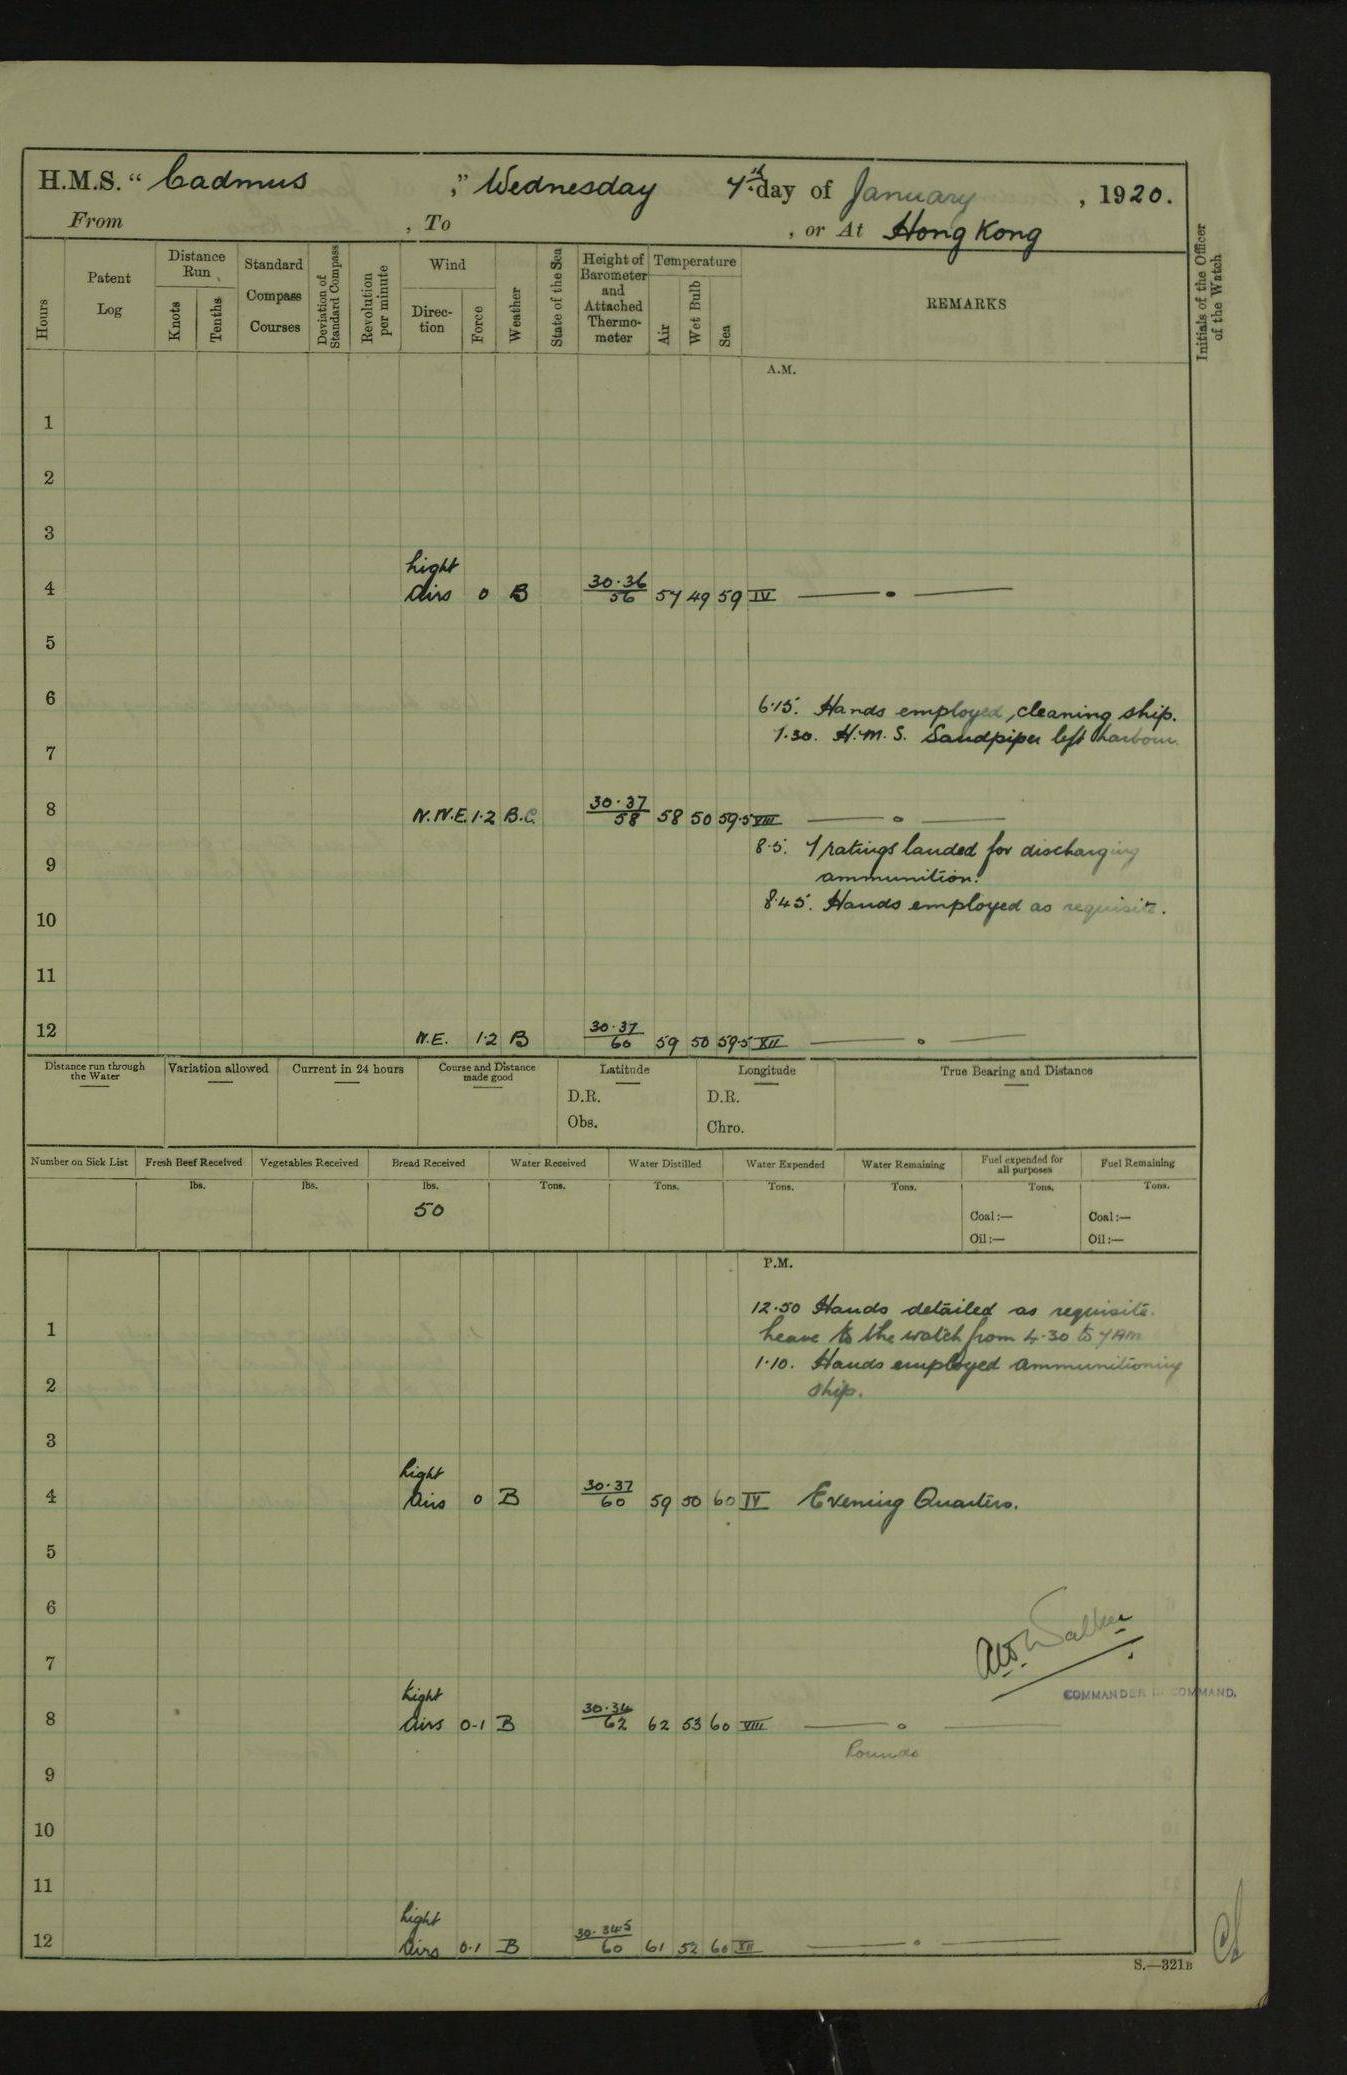 H.M.S. “ Cadmus ,” Wednesday 7th day of January , 1920.
From , To , or At Hong Kong
Hours
Patent Log
Distance Run
Knots
Tenths
Standard Compass Courses
Deviation of Standard Compass
Revolution per minute
Wind
Direc-tion
Force
Weather
State of the Sea
Height of Barometer and Attached Thermo-meter
Temperature
Air
Wet Bulb
Sea
REMARKS
Initials of the Officer of the Watch
A.M.
1
2
3
Light
4 Airs 0 B 30.36 / 56 57 49 59 IV
5
6
6.15. Hands employed, cleaning ship.
7.30. H.M.S. Sandpiper left harbour.
7
8 N.N.E. 1.2 B.C. 30.37 / 58 58 50 59.5 VIII
8.5. 7 ratings landed for discharging
9
ammunition.
8.45. Hands employed as requisite.
10
11
12 N.E. 1.2 B 30.37 / 60 59 50 59.5 XII
Distance run through the Water
Variation allowed
Current in 24 hours
Course and Distance made good
Latitude
D.R.
Obs.
Longitude
D.R.
Chro.
True Bearing and Distance
Number on Sick List
Fresh Beef Received lbs.
Vegetables Received lbs.
Bread Received lbs.
50
Water Received Tons.
Water Distilled Tons.
Water Expended Tons.
Water Remaining Tons.
Fuel expended for all purposes Tons.
Coal:—
Oil:—
Fuel Remaining Tons.
Coal:—
Oil:—
P.M.
12.50 Hands detailed as requisite.
1 Leave to the watch from 4.30 to 7 AM
1.10. Hands employed ammunitioning
2 ship.
3
Light
4 Airs 0 B 30.37 / 60 59 50 60 IV Evening Quarters.
5
6
Walker
7
COMMANDER IN COMMAND.
Light
8 Airs 0.1 B 30.34 / 62 62 53 60 VIII
Rounds
9
10
11
Light
12 Airs 0.1 B 30.345 / 60 61 52 60 XII
S.—321B